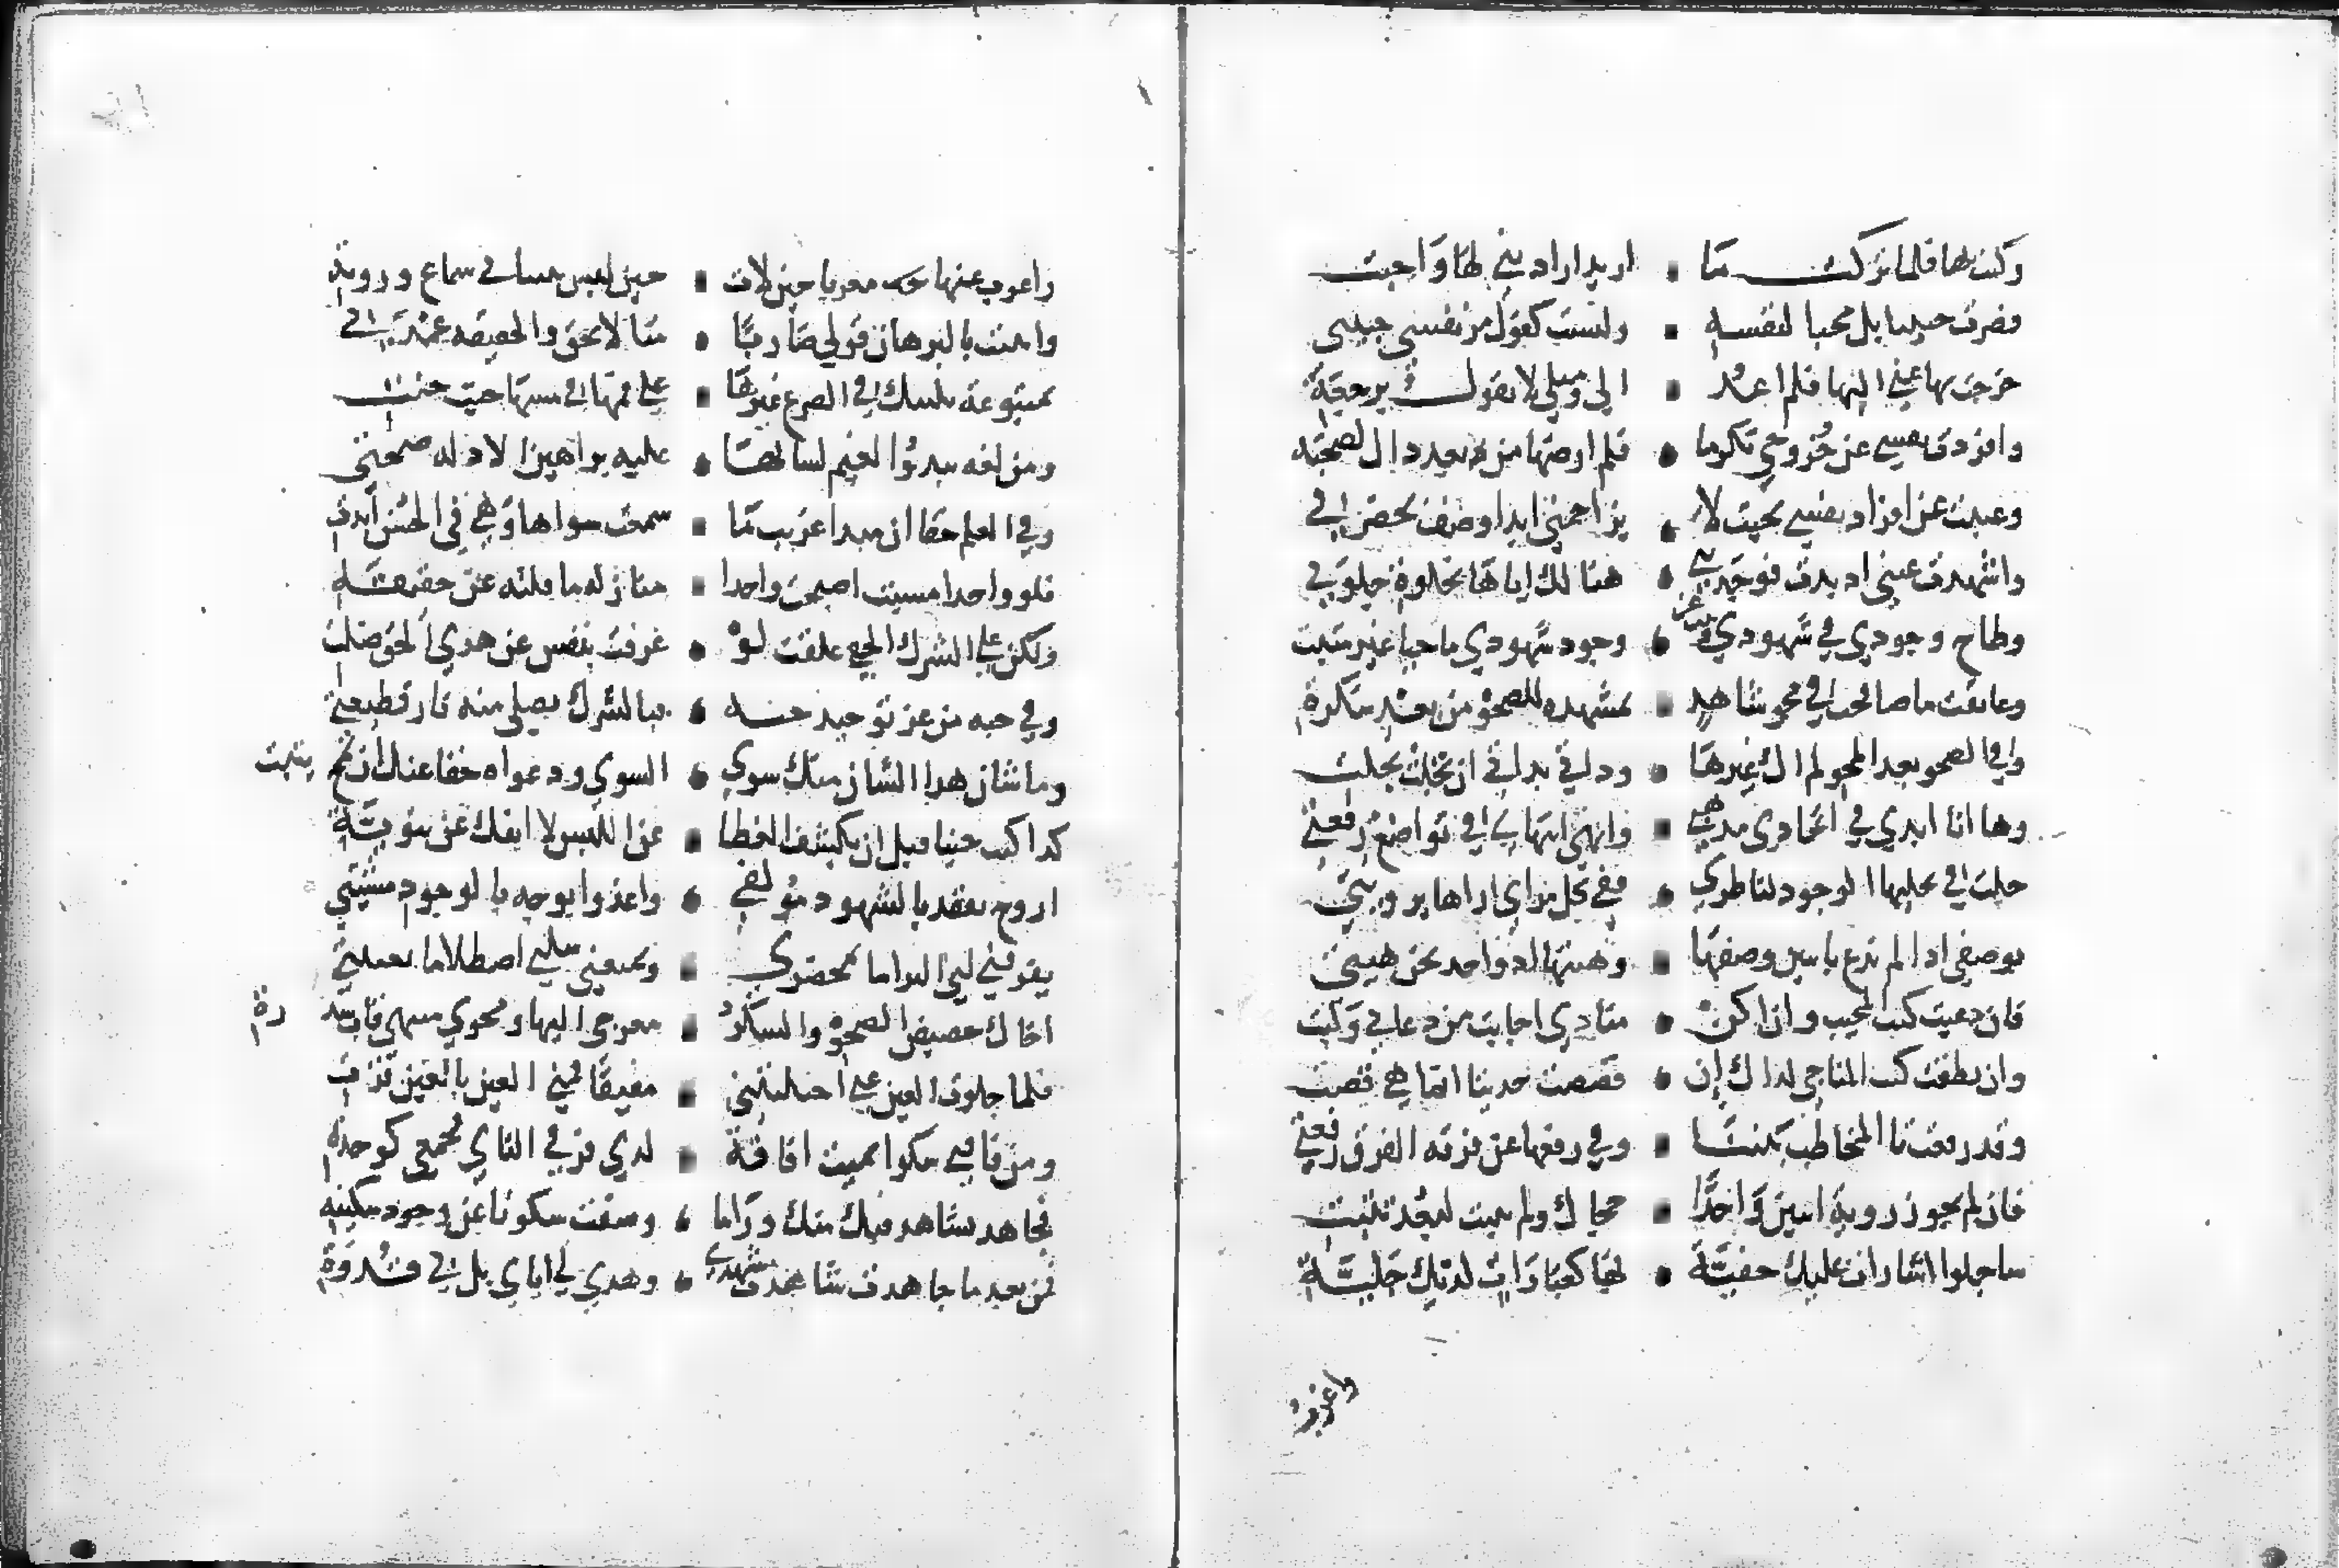 وكنت بها فلما تركت ما اريد ارادتني لها واحبت
فصرت حبيبا بل محبا لنفسه وليست كقول مر نفسي حبيبتي
خرجت بها عني اليها فلم اعد الي ومثلي لا يقول برجعة
وافردت نفسي عن خروجي تكرما فلم ارضها من بعد ذاك لصحبة
وغيبت عن افراد نفسي بحيث لا يزاحمني ابدا وصف بحضرتي
واشهدت غيبي اذ بدت فوجدتني هنالك اياها بخلوة جلوتي
وطاح وجودي في شهودي وبنت عن وجود شهودي ماحيا غير مثبت
وعانقت ما شاهدت في محو شاهدي بمشهده للصحو من بعد سكرة
وفي الصحو بعد المحو لم اك غيرها وذاتي بذاتي اذ تحلت تجلت
وها انا ابدي في اتحادي مبدئي وانهي انتهائي في تواضع رفعتي
جلت في تجليها الوجود لناظري ففي كل مراي اراها بروية
فوصفي اذ لم تدع باثنين وصفها وهيئتها اذ واحد نحن هيئتي
فان دعيت كنت المجيب وان اكن منادي اجابت من دعاني ولبت
وان نطقت كنت المناجي كذاك ان قصصت حديثا انما هي قصت
وقد رفعت تا المخاطب بيننا وفي رفعها عن فرقة الفرق رفعتي
فان لم يجوز روية اثنين واحدا حجاك ولم يثبت لبعد تثبت
ساجلوا اشارات عليك خفية بها كعبارات لديك جلية
واعرب
واعرب عنها معربا حيث لات حين لبس بتبياني سماع وروية
واثبت بالبرهان قولي ضاربا مثالا لمحق والحقيقة عمدتي
بمتبوعة ينبيك في الصرع غيرها علي فمها في مسها حيث جنت
ومن لغة تبدوا لغير لسانها عليه براهين الادلة صحت
وفي العلم حقا ان مبدا غريب ما سمعت سواها وهي في الحسن ابدت
فلو واحدا امسيت اصبحت واجدا منازلة ما قلته عن حقيقة
ولكن علي الشرك الخفي عكفت لو عرفت بنفس عن هدي الحق ضلت
وفي حبه من عز توحيد حبه فبالشرك يصلي منه نار قطيعة
وما شان هذا الشان منك سوي السوي ودعواه حقا عنك ان تمح يثبت
كذا كنت حينا قبل ان يكشف الغطا من اللبس لا انفك عن ثنوية
اروح بفقد بالشهود مولفي واغدوا بوجد بالوجود مشتتي
يفرقني لبي التزاما بمحضري ويجمعني سلبي اصطلاما بغيبتي
اخال حضيضي الصحو والسكر معرجي اليها ومحوي منتهي قاب سدرة
فلما جلوت الغين عني اجتليتني مفيقا فمني العين بالعين قرت
ومن فاقتي سكرا غنيت افاقة لدي فرقي الثاني فجمعي كوحدتي
فجاهد تشاهد فيك منك وراما وصفت سكونا عن وجود سكينة
فمن بعد ما جاهدت شاهدت مشهدي وهدي لي اياي بل بي قدوة